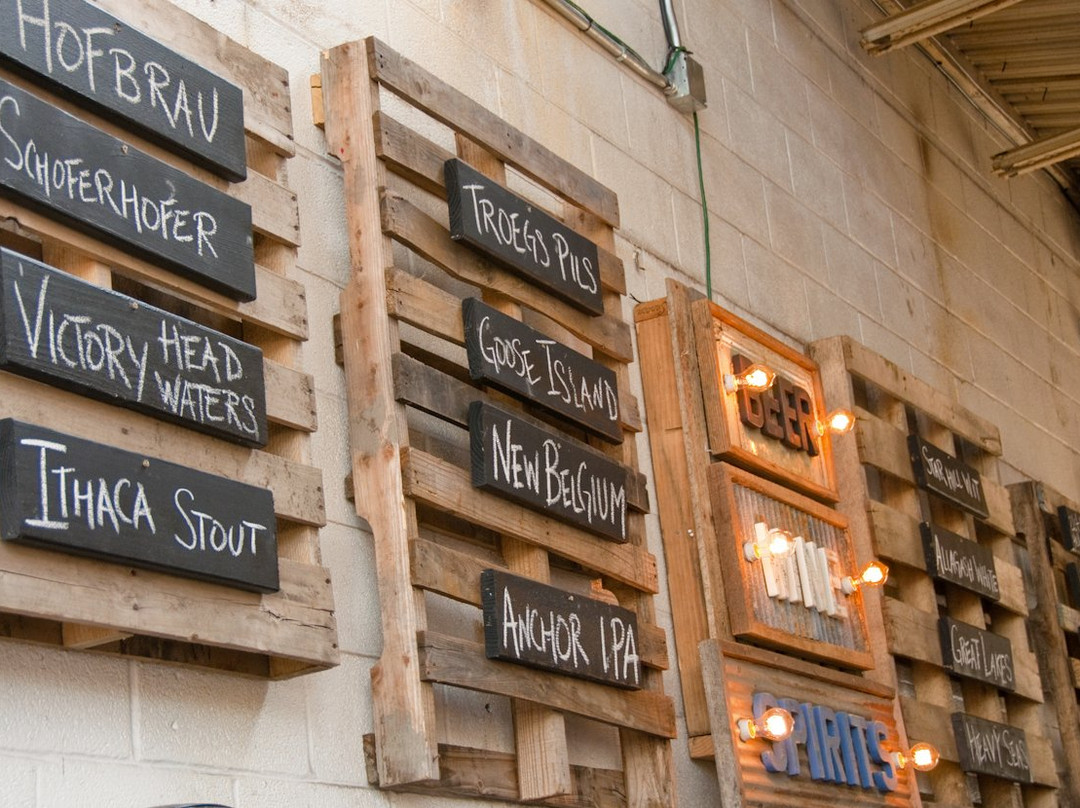 HOFBRAU
SCHOFERHOFER
VICTORY HEAD
WATERS
ITHACA STOUT
TROEGS PILS
GOOSE ISLAND
NEW BELGIUM
ANCHOR IPA
BEER
WINE
SPIRITS
STAR HILL WIT
ALLAGASH WHITE
GREAT LAKES
HEAVY SEAS